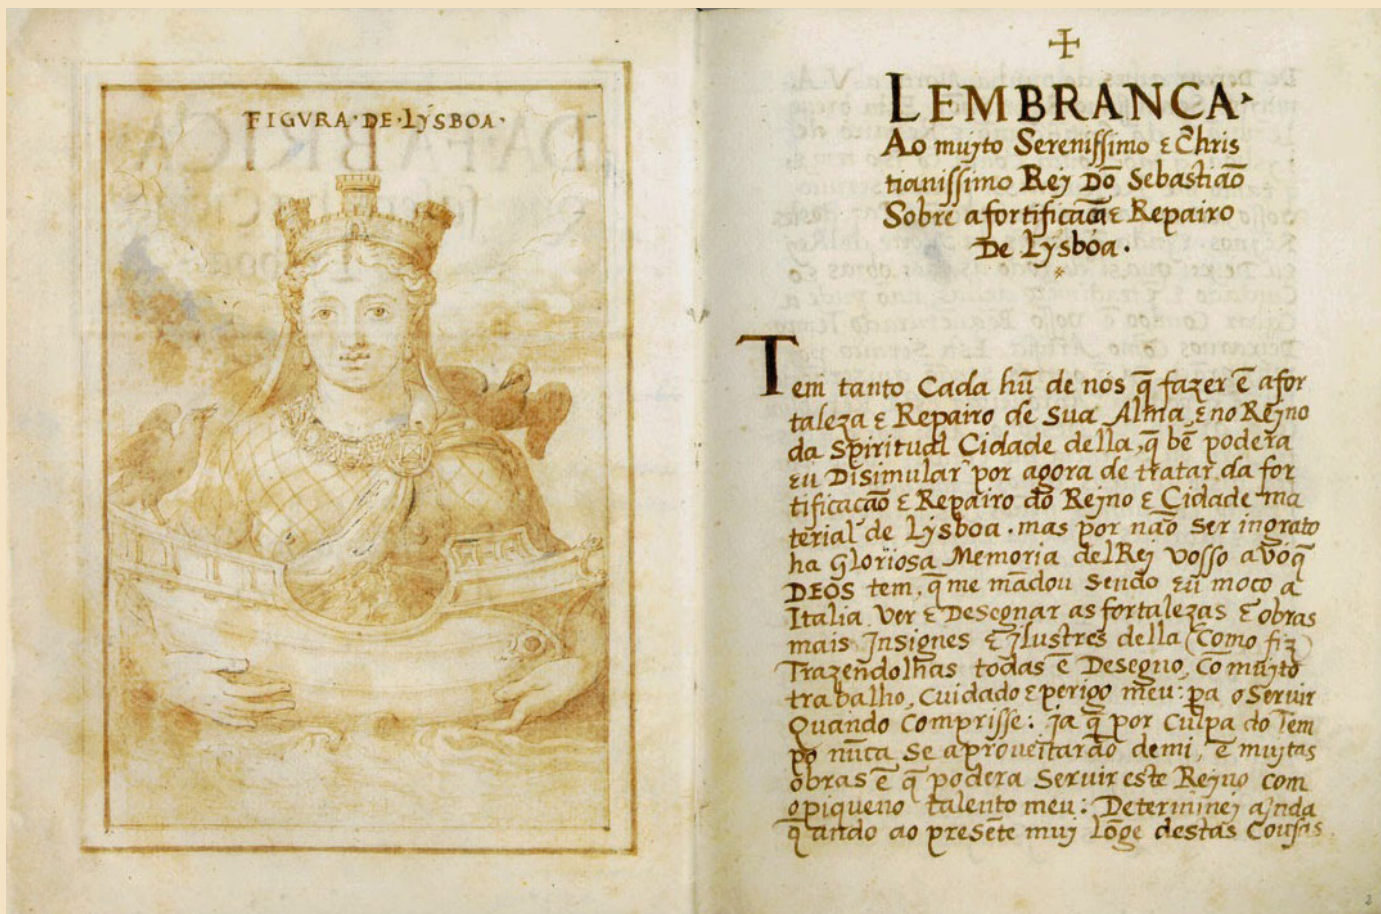 FIGVRA·DE·LẏSBOA·
LEMBRANCA·
Ao muyto Serenissimo & Chris
tianissimo Rey Dō Sebastiaõ
Sobre afortificacaā & Repairo
De Lysbóa·
Tem tanto Cada hũ de nós q̃ fazer ē afor
taleza & Repairo de Sua Alma, & no Reyno
da Spiritual Cidade della, q̃ bē podera
eu Disimular por agora de tratar da for
tificacaõ & Repairo do Reyno & Cidade ma
terial de Lysboa· mas por naõ ser ingrato
ha Gloriosa Memoria delRej vosso avó q̃
DEOS tem, q̃ me mādou Sendo eu moco a
Italia ver & Desegnar as fortalezas & obras
mais Insignes & Ilustres della (Como fiz)
Trazendolhas todas ē Desegno, Cō muyto
trabalho, Cuidado & perigo meu: pa o Servir
Quando Comprisse: ja q̃ por Culpa do Tem
po nūca Se aproveitaraõ demi, ē muytas
obras ē q̃ podera Servir este Reyno com
opiqueno talento meu: Determiney ajnda
q̃ ando ao presēte muy lōge destas Cousas
2